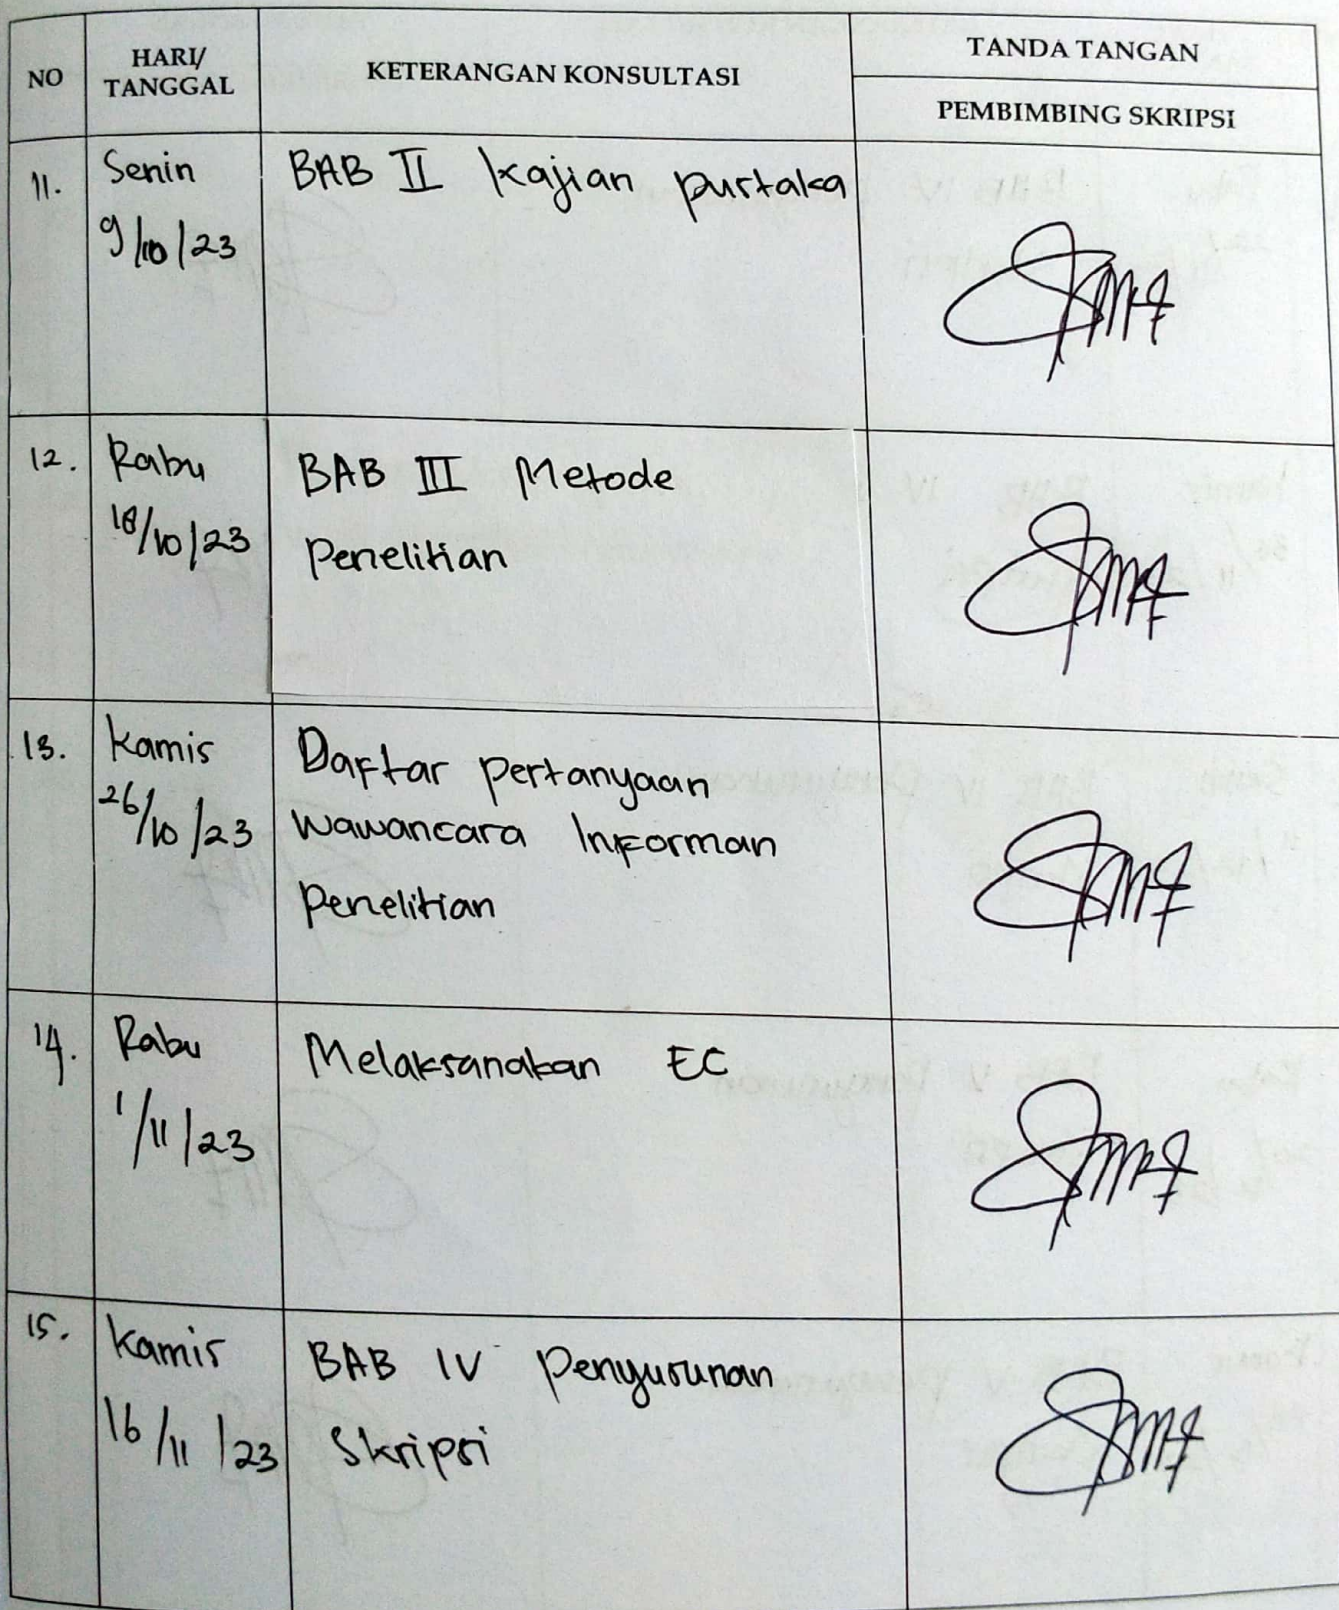 NO
HARI/
TANGGAL
KETERANGAN KONSULTASI
TANDA TANGAN
PEMBIMBING SKRIPSI
11.
Senin
9/10/23
BAB II Kajian pustaka
12.
Rabu
18/10/23
BAB III Metode
Penelitian
13.
Kamis
26/10/23
Daftar pertanyaan
wawancara Informan
Penelitian
14.
Rabu
1/11/23
Melaksanakan EC
15.
Kamis
16/11/23
BAB IV Penyusunan
Skripsi